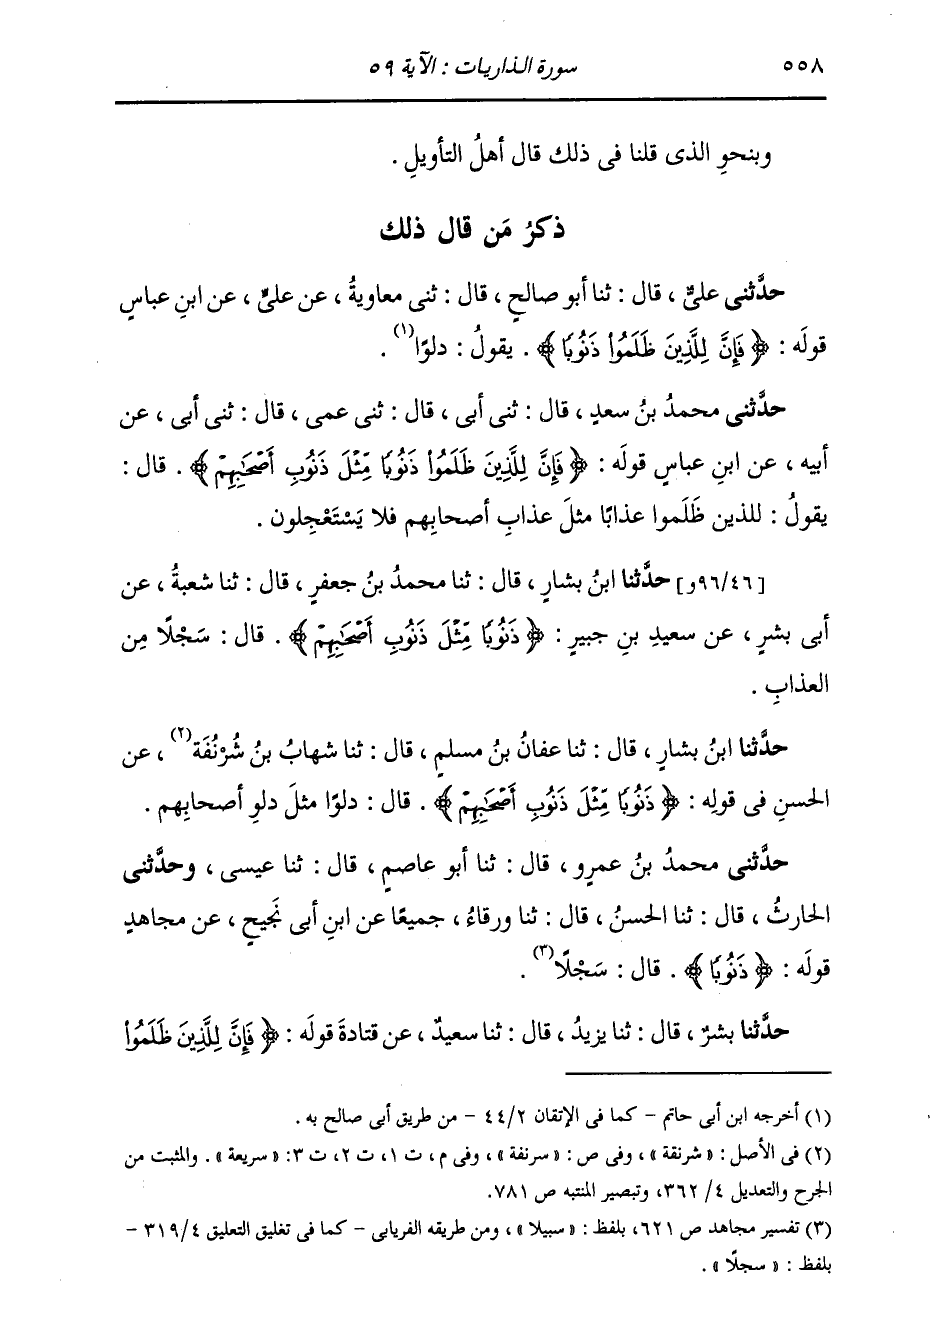 ٥٥٨
سورة الذاريات : الآية ٥٩
وبنحوِ الذى قلنا فى ذلك قال أهلُ التأويلِ .
ذكرُ مَن قال ذلك
حدَّثنى علىٌّ ، قال : ثنا أبو صالحٍ ، قال : ثنى معاويةُ ، عن علىٍّ ، عن ابنِ عباسٍ
قولَه : ﴿ فَإِنَّ لِلَّذِينَ ظَلَمُوا۟ ذَنُوبًا ﴾ . يقولُ : دلوًا(١) .
حدَّثنى محمدُ بنُ سعدٍ ، قال : ثنى أبى ، قال : ثنى عمى ، قال : ثنى أبى ، عن
أبيه ، عن ابنِ عباسٍ قولَه : ﴿ فَإِنَّ لِلَّذِينَ ظَلَمُوا۟ ذَنُوبًا مِّثْلَ ذَنُوبِ أَصْحَٰبِهِمْ ﴾ . قال :
يقولُ : للذين ظَلَموا عذابًا مثلَ عذابِ أصحابِهم فلا يَسْتَعْجِلون .
[٩٦/٤٦و] حدَّثنا ابنُ بشارٍ ، قال : ثنا محمدُ بنُ جعفرٍ ، قال : ثنا شعبةُ ، عن
أبى بشرٍ ، عن سعيدِ بنِ جبيرٍ : ﴿ ذَنُوبًا مِّثْلَ ذَنُوبِ أَصْحَٰبِهِمْ ﴾ . قال : سَجْلًا مِن
العذابِ .
حدَّثنا ابنُ بشارٍ ، قال : ثنا عفانُ بنُ مسلمٍ ، قال : ثنا شهابُ بنُ شُرْنُفَة(٢) ، عن
الحسنِ فى قولِه : ﴿ ذَنُوبًا مِّثْلَ ذَنُوبِ أَصْحَٰبِهِمْ ﴾ . قال : دلوًا مثلَ دلوِ أصحابِهم .
حدَّثنى محمدُ بنُ عمرٍو ، قال : ثنا أبو عاصمٍ ، قال : ثنا عيسى ، وحدَّثنى
الحارثُ ، قال : ثنا الحسنُ ، قال : ثنا ورقاءُ ، جميعًا عن ابنِ أبى نَجيحٍ ، عن مجاهدٍ
قولَه : ﴿ ذَنُوبًا ﴾ . قال : سَجْلًا(٣) .
حدَّثنا بشرٌ ، قال : ثنا يزيدُ ، قال : ثنا سعيدٌ ، عن قتادةَ قولَه : ﴿ فَإِنَّ لِلَّذِينَ ظَلَمُوا۟
(١) أخرجه ابن أبى حاتم - كما فى الإتقان ٤٤/٢ - من طريق أبى صالح به .
(٢) فى الأصل : « شرنقة » ، وفى ص : « سرنفة » ، وفى م ، ت ١ ، ت ٢ ، ت ٣: « سريعة » . والمثبت من
الجرح والتعديل ٤/ ٣٦٢، وتبصير المنتبه ص ٧٨١.
(٣) تفسير مجاهد ص ٦٢١، بلفظ : « سبيلا » ، ومن طريقه الفريابى - كما فى تغليق التعليق ٣١٩/٤ -
بلفظ : « سجلًا » .